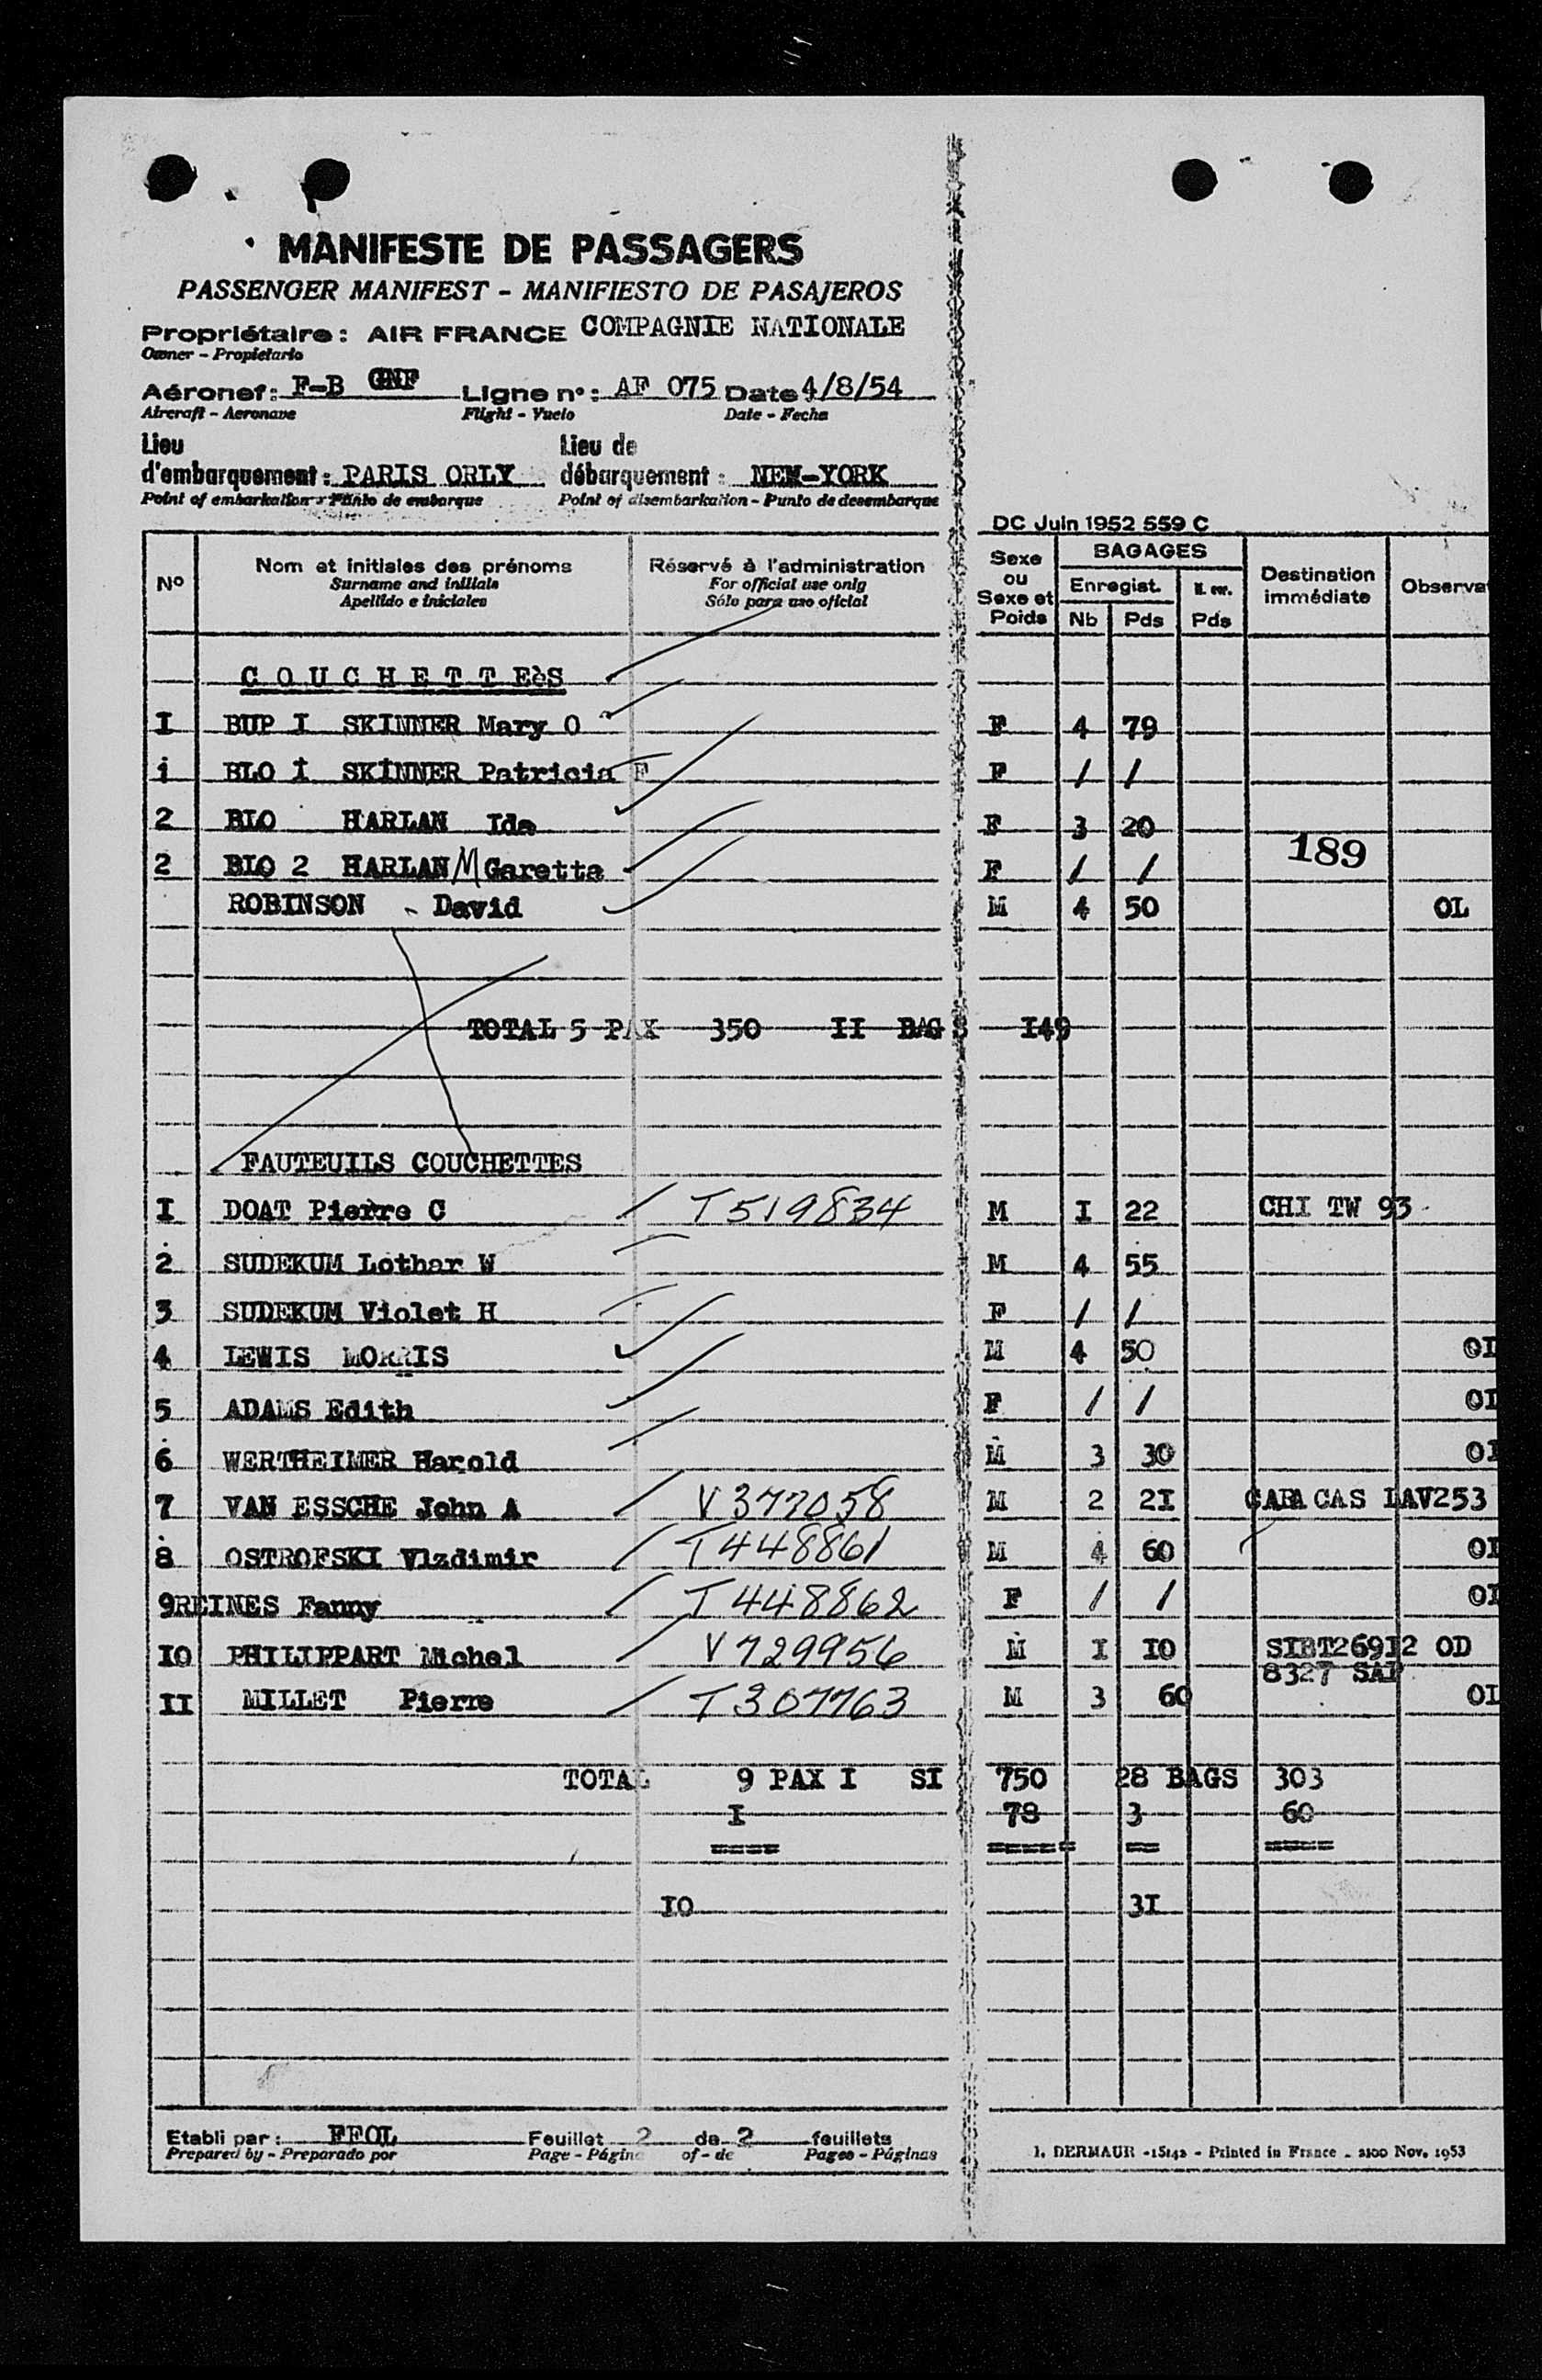 MANIFESTE DE PASSAGERS
PASSENGER MANIFEST - MANIFIESTO DE PASAJEROS
Propriétaire : AIR FRANCE COMPAGNIE NATIONALE
Owner - Propietario
Aéronef : F-B GNF Ligne n° : AF 075 Date 4/8/54
Aircraft - Aeronave Flight - Vuelo Date - Fecha
Lieu d'embarquement : PARIS ORLY Lieu de débarquement : NEW-YORK
Point of embarkation - Punto de embarque Point of disembarkation - Punto de desembarque
DC Juin 1952 559 C
N° Nom et initiales des prénoms Réservé à l'administration Sexe ou Sexe et Poids BAGAGES Destination immédiate Observa
Surname and initials For official use only Enregist.
Apellido e iniciales Sólo para uso oficial Nb Pds Pds
C O U C H E T T EèS
I BUP I SKINNER Mary O F 4 79
i BLO I SKINNER Patricia F F / /
2 BLO HARLAN Ida F 3 20
189
2 BLO 2 HARLAN M Garetta F / /
ROBINSON - David M 4 50 OL
TOTAL 5 PAX 350 II BAG S I49
FAUTEUILS COUCHETTES
I DOAT Pierre C T519834 M I 22 CHI TW 93
2 SUDEKUM Lothar W M 4 55
3 SUDEKUM Violet H F / /
4 LEWIS MORRIS M 4 50 OI
5 ADAMS Edith F / / OI
6 WERTHEIMER Harold M 3 30 OI
7 VAN ESSCHE John A V377058 M 2 2I CARA CAS LAV253
8 OSTROFSKI Vlzdimir T448861 M 4 60 OI
9REINES Fanny T448862 F / / OI
IO PHILIPPART Michel V729956 M I IO SIBT269I2 OD
8327 SAP
II MILLET Pierre T307763 M 3 60 OI
TOTAL 9 PAX I SI 750 28 BAGS 303
I 78 3 60
==== ===== == ====
IO 3I
Etabli par : FFOL Feuillet 2 de 2 feuillets
Prepared by - Preparado por Page - Página of - de Pages - Páginas
I. DERMAUR - 15142 - Printed in France - 2100 Nov. 1953